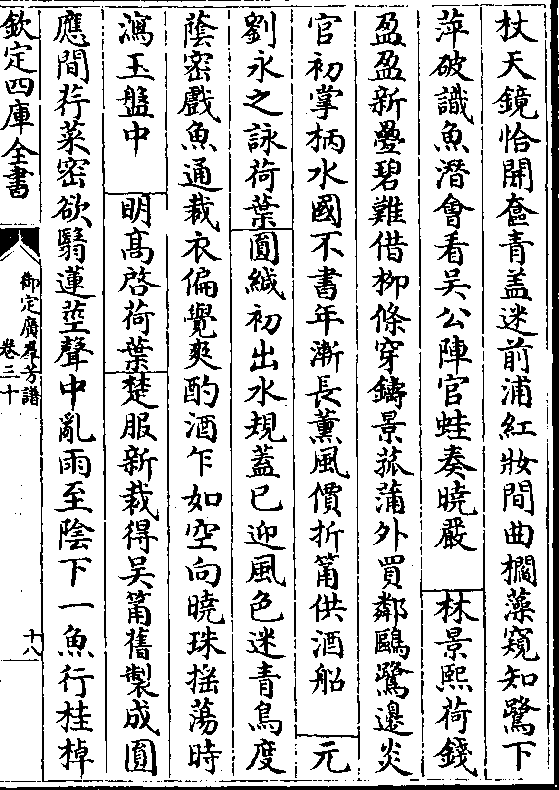 杖天鏡恰開奩青盖迷前浦紅妝間曲欄藻窺知鷺下
萍破識魚潛會看吳公陣官蛙奏曉嚴 林景熙荷錢
盈盈新疊碧難借栁條穿鑄景菰蒲外買鄰鷗鷺邊炎
官初掌柄水國不書年漸長薫風價折筩供酒船 元
劉永之詠荷葉圎緘初出水規蓋已迎風色迷青鳥度
蔭密戲魚通裁衣偏覺爽酌酒乍如空向曉珠揺蕩時
瀉玉盤中 明髙啓荷葉楚服新裁得吳筩舊製成圎
應間荇菜密欲翳蓮莖聲中亂雨至陰下一魚行桂棹
欽定四庫全書
御定廣羣芳譜
卷三十
十八